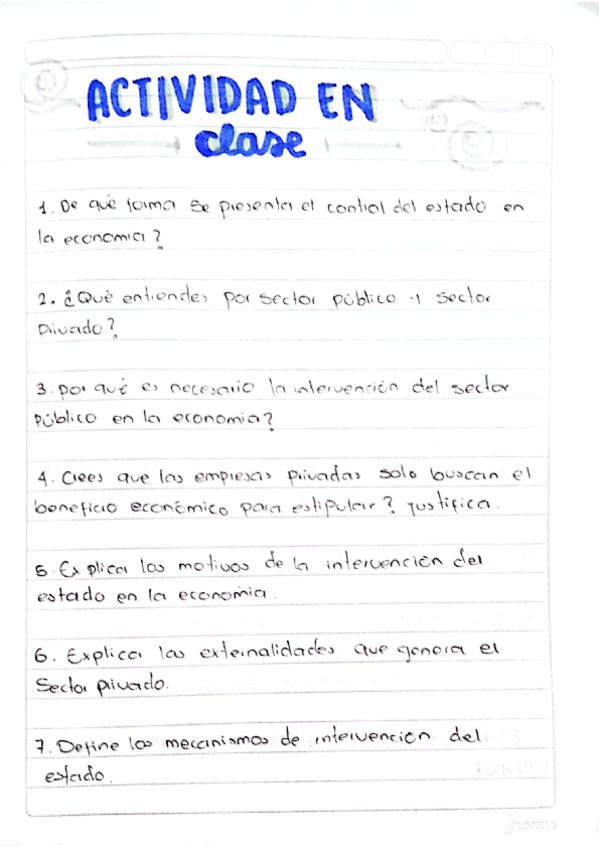 ACTIVIDAD EN
clase
1. De qué forma se presenta el control del estado en
la economia?
2. ¿Què entiendes por sector público y sector
privado?
3. por què es necesario la intervención del sector
Público en la economia?
4. Crees que las empresas privadas solo buscan el
beneficio económico para estipular? justifica.
5. Explica los motivos de la intervención del
estado en la economia.
6. Explica las externalidades que genera el
Sector privado.
7. Define los mecanismos de intervención del
estado.
norma